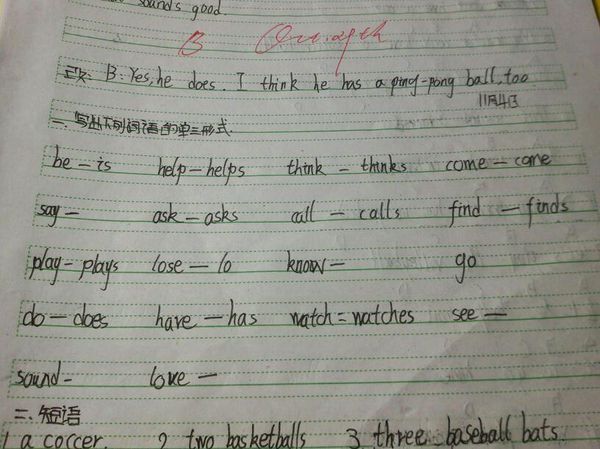 sounds good.
B
改: B: Yes, he does. I think he has a ping-pong ball, too.
11月4日
一. 写出下列词语的单三形式.
be — is help — helps think — thinks come — come
say — ask — asks call — calls find — finds
play — plays lose — lo know — go
do — does have — has watch = watches see —
sound - love —
二. 短语
1 a coccer. 2 two basketballs 3 three baseball bats.